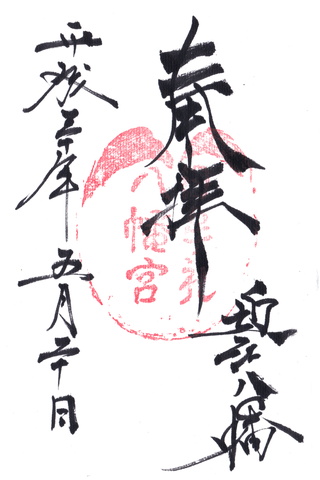 奉拝
近江八幡
八幡宮
平成三十年五月二十日